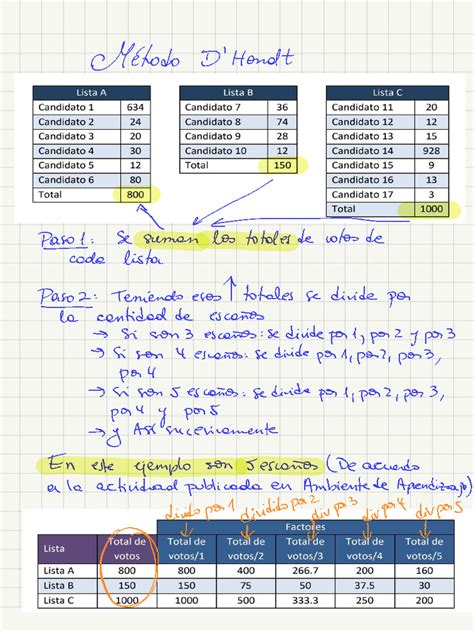 Método D'Hondt
Lista A
Candidato 1 634
Candidato 2 24
Candidato 3 20
Candidato 4 30
Candidato 5 12
Candidato 6 80
Total 800
Lista B
Candidato 7 36
Candidato 8 74
Candidato 9 28
Candidato 10 12
Total 150
Lista C
Candidato 11 20
Candidato 12 12
Candidato 13 15
Candidato 14 928
Candidato 15 9
Candidato 16 13
Candidato 17 3
Total 1000
Paso 1: Se suman los totales de votos de
cada lista
Paso 2: Teniendo esos totales se divide por
la cantidad de escaños
→ Si son 3 escaños: se divide por 1, por 2 y por 3
→ Si son 4 escaños: se divide por 1, por 2, por 3,
por 4
→ Si son 5 escaños: se divide por 1, por 2, por 3,
por 4 y por 5
→ y Así sucesivamente
En este ejemplo son 5 escaños (De acuerdo
a la actividad publicada en Ambiente de Aprendizaje)
divido por 1 dividido por 2 div por 3 div por 4 div por 5
Factores
Lista Total de votos Total de votos/1 Total de votos/2 Total de votos/3 Total de votos/4 Total de votos/5
Lista A 800 800 400 266.7 200 160
Lista B 150 150 75 50 37.5 30
Lista C 1000 1000 500 333.3 250 200